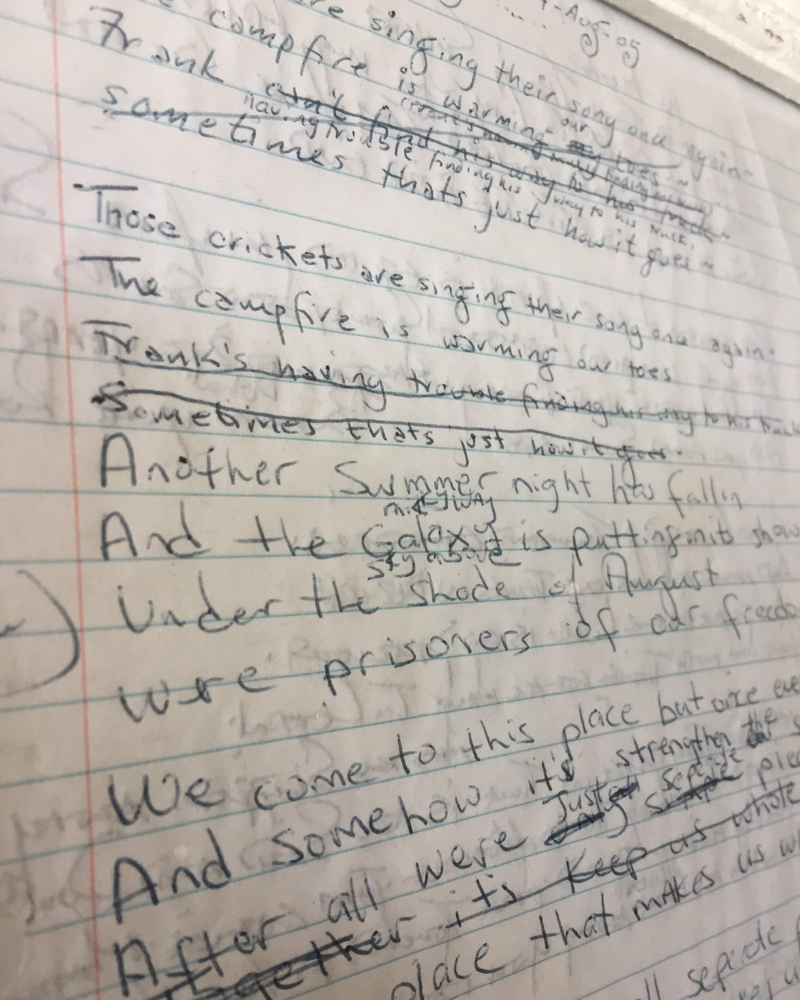 -Aug-05
re singing their song once again-
e campfire is warming our toes ~
Frank can't find his way to his truck ~
having trouble finding his way to his truck.
sometimes thats just how it goes ~
Those crickets are singing their song once again.
The campfire is warming our toes
Frank's having trouble finding his way to his truck
Sometimes thats just how it goes.
Another Summer night has fallin
milkyway
And the Galaxy is putting on its show
sky above
Under the shade of August
were prisoners of our freedo
We come to this place but once eve
And somehow it's strengthen the s
After all were just seperate piec
Together it's keep us whole
place that makes us w
ll seperate p